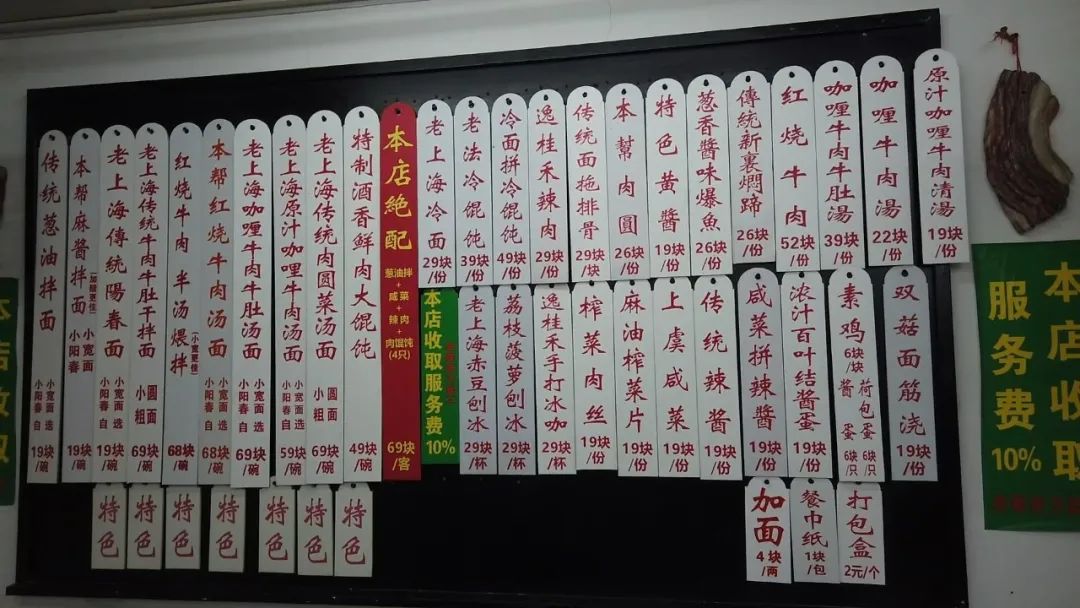 传统葱油拌面
小阳春 小宽面 自选
19块/碗
本帮麻酱拌面
小阳春 小宽面
19块/碗
老上海傳統陽春面
小阳春 小宽面 自选
19块/碗
老上海传统牛肉牛肚干拌面
小粗 圆面
69块/碗
红烧牛肉半汤煨拌
(小宽更佳)
68块/碗
本帮红烧牛肉汤面
小阳春 小宽面 自选
68块/碗
老上海咖喱牛肉牛肚汤面
小阳春 小宽面 自选
69块/碗
老上海原汁咖喱牛肉汤面
小阳春 小宽面 自选
59块/碗
老上海传统肉圆菜汤面
小粗 圆面
69块/碗
特制酒香鲜肉大馄饨
49块/碗
本店絶配
葱油拌
+
咸菜
+
辣肉
+
肉馄饨
(4只)
69块/客
老上海冷面
29块/份
老法冷馄饨
39块/份
冷面拼冷馄饨
49块/份
逸桂禾辣肉
29块/份
传统面拖排骨
29块/块
本幫肉圓
26块/份
特色黄醬
19块/份
葱香醬味爆魚
26块/份
傳統新裏燜蹄
26块/份
红烧牛肉
52块/份
咖喱牛肉牛肚湯
39块/份
咖喱牛肉湯
22块/份
原汁咖喱牛肉清湯
19块/份
本店收取服务费
10%
老上海赤豆刨冰
29块/杯
荔枝菠萝刨冰
29块/杯
逸桂禾手打冰咖
29块/杯
榨菜肉丝
19块/份
麻油榨菜片
19块/份
上虞咸菜
19块/份
传统辣酱
19块/份
咸菜拼辣醬
19块/份
浓汁百叶结酱蛋
19块/份
素鸡
6块/块
酱蛋
6块/只
荷包蛋
6块/只
双菇面筋浇
19块/份
特色
特色
特色
特色
特色
特色
特色
加面
4块/两
餐巾纸
1块/包
打包盒
2元/个
本店收取
服务费
10%